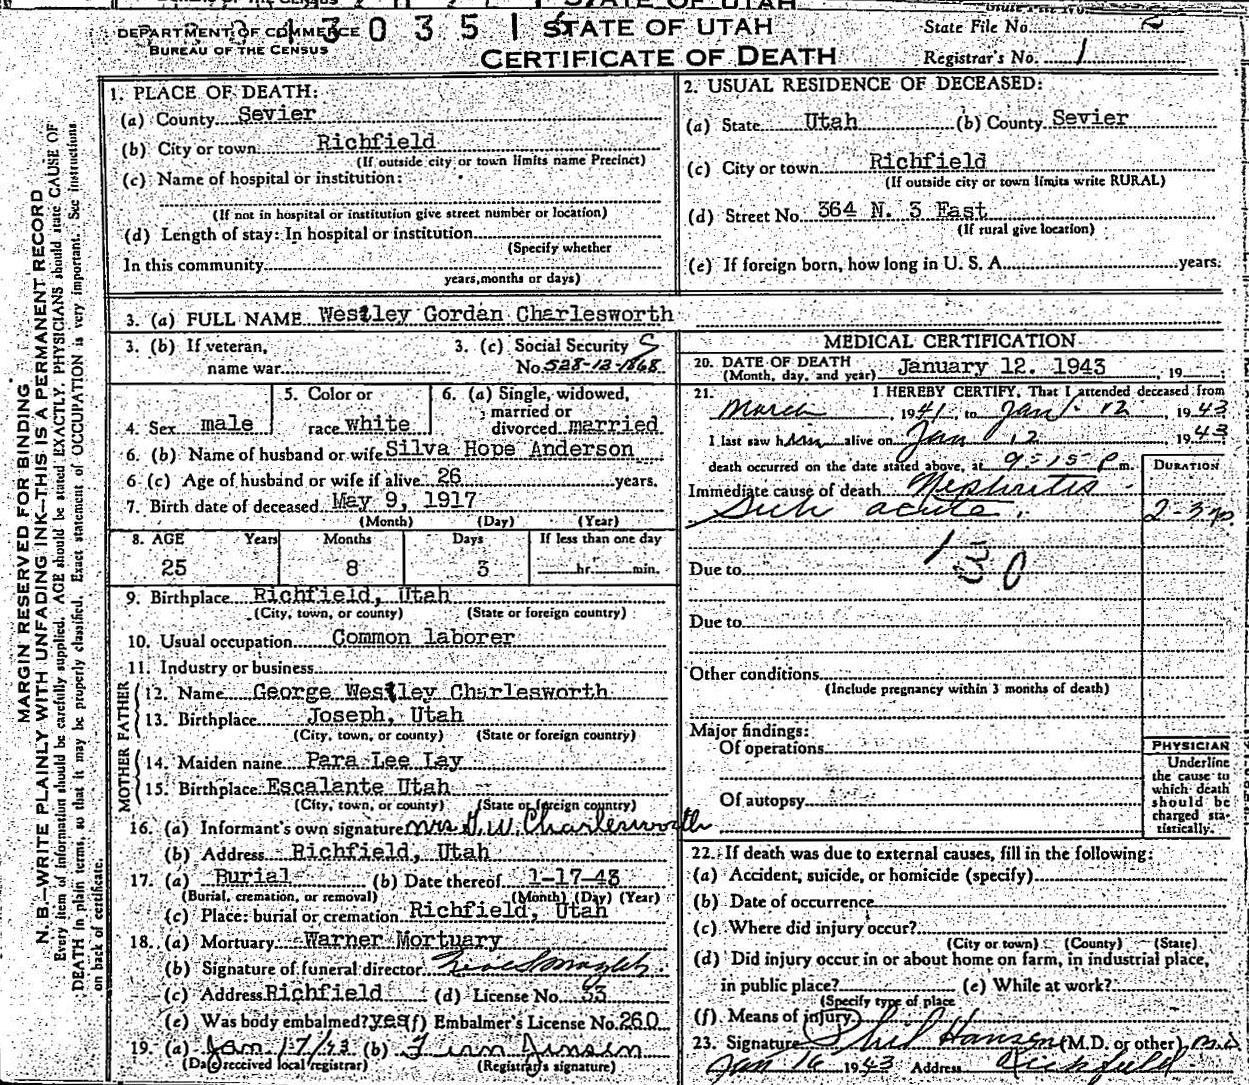 STATE OF UTAH
DEPARTMENT OF COMMERCE
BUREAU OF THE CENSUS
13035
STATE OF UTAH
CERTIFICATE OF DEATH
State File No.
Registrar's No. 1
MARGIN RESERVED FOR BINDING
N. B.—WRITE PLAINLY WITH UNFADING INK—THIS IS A PERMANENT RECORD
Every item of information should be carefully supplied. AGE should be stated EXACTLY. PHYSICIANS should state CAUSE OF
DEATH in plain terms, so that it may be properly classified. Exact statement of OCCUPATION is very important. See instructions
on back of certificate.
1. PLACE OF DEATH:
(a) County Sevier
(b) City or town Richfield
(If outside city or town limits name Precinct)
(c) Name of hospital or institution:
(If not in hospital or institution give street number or location)
(d) Length of stay: In hospital or institution
(Specify whether
In this community
years, months or days)
2. USUAL RESIDENCE OF DECEASED:
(a) State Utah (b) County Sevier
(c) City or town Richfield
(If outside city or town limits write RURAL)
(d) Street No. 364 N. 3 East
(If rural give location)
(e) If foreign born, how long in U. S. A. years.
3. (a) FULL NAME Westley Gordan Charlesworth
3. (b) If veteran, name war
3. (c) Social Security No. 528-12-1868
4. Sex male
5. Color or race white
6. (a) Single, widowed, married or divorced married
6. (b) Name of husband or wife Silva Hope Anderson
6 (c) Age of husband or wife if alive 26 years.
7. Birth date of deceased May 9, 1917
(Month) (Day) (Year)
8. AGE Years Months Days If less than one day
25 8 3 hr. min.
9. Birthplace Richfield, Utah
(City, town, or county) (State or foreign country)
10. Usual occupation Common laborer
11. Industry or business
FATHER
12. Name George Westley Charlesworth
13. Birthplace Joseph, Utah
(City, town, or county) (State or foreign country)
MOTHER
14. Maiden name Para Lee Lay
15. Birthplace Escalante Utah
(City, town, or county) (State or foreign country)
16. (a) Informant's own signature Mrs G. W. Charlesworth
(b) Address Richfield, Utah
17. (a) Burial (b) Date thereof 1-17-43
(Burial, cremation, or removal) (Month) (Day) (Year)
(c) Place: burial or cremation Richfield, Utah
18. (a) Mortuary Warner Mortuary
(b) Signature of funeral director
(c) Address Richfield (d) License No. 33
(e) Was body embalmed? yes (f) Embalmer's License No. 260
19. (a) Jan. 17/43 (b)
(Date received local registrar) (Registrar's signature)
MEDICAL CERTIFICATION
20. DATE OF DEATH January 12. 1943, 19
(Month, day, and year)
21. I HEREBY CERTIFY, That I attended deceased from
March, 1941, to Jan. 12, 1943
I last saw him alive on Jan 12, 1943
death occurred on the date stated above, at 9:15 P m.
DURATION
Immediate cause of death Nephritis
acute. 2-3
130
Due to
Due to
Other conditions
(Include pregnancy within 3 months of death)
Major findings:
Of operations
Of autopsy
PHYSICIAN
Underline
the cause to
which death
should be
charged sta-
tistically.
22. If death was due to external causes, fill in the following:
(a) Accident, suicide, or homicide (specify)
(b) Date of occurrence
(c) Where did injury occur?
(City or town) (County) (State)
(d) Did injury occur in or about home on farm, in industrial place,
in public place? (e) While at work?
(Specify type of place
(f) Means of injury
23. Signature Phil Hansen (M.D. or other) M.D
Jan 16 1943 Address Richfield